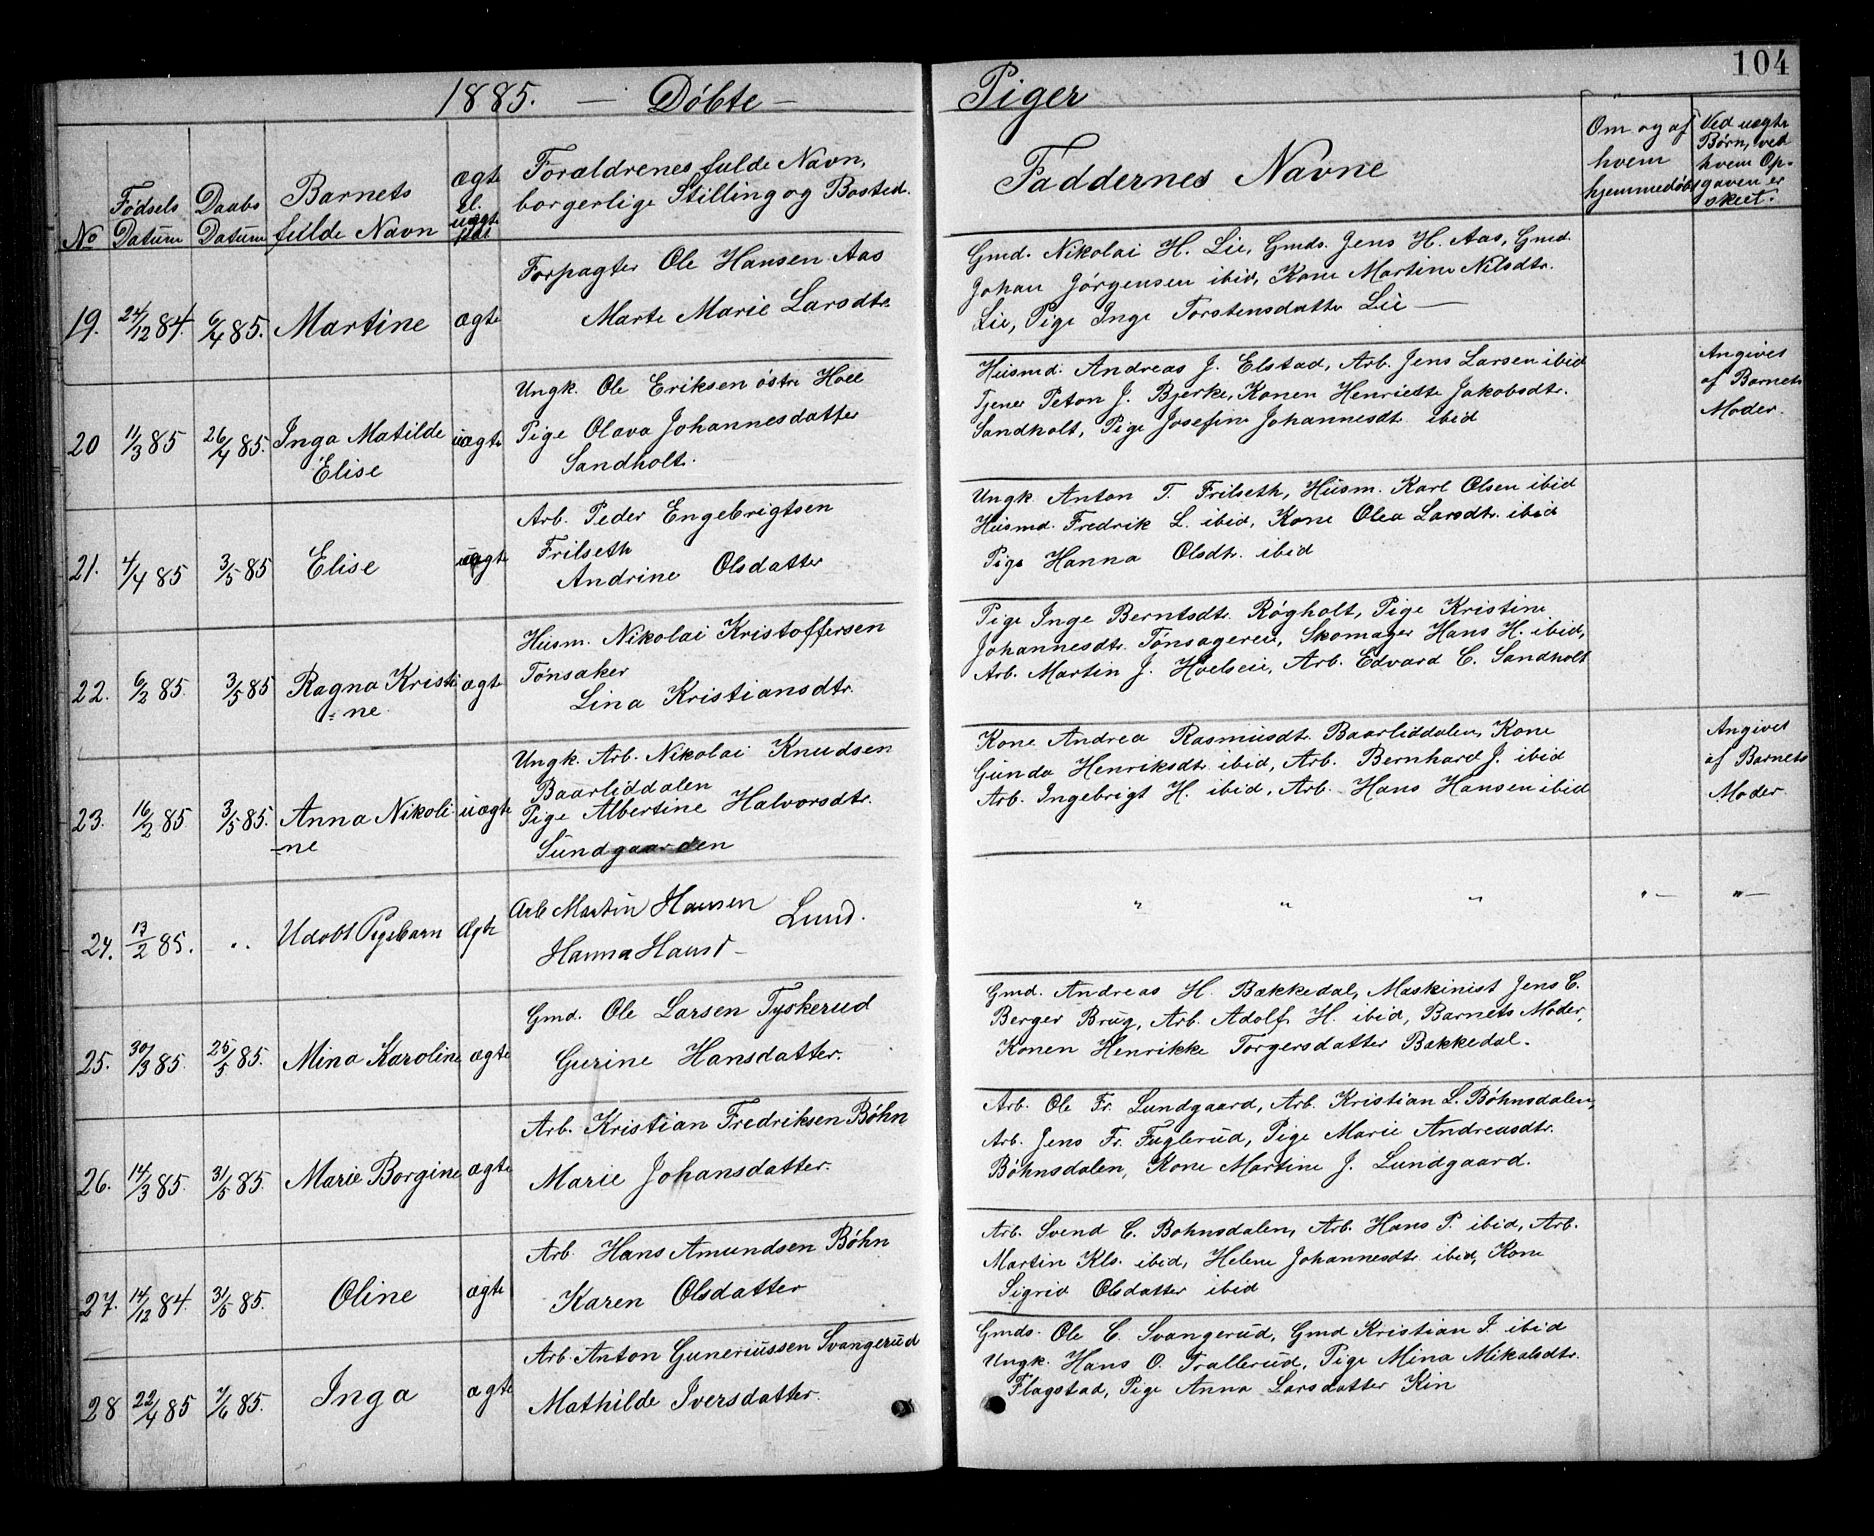 104
1885. — Döbte — Piger
No
Fødsels Datum
Daabs Datum
Barnets fulde Navn
ægte el. uægte
Forældrenes fulde Navn, borgerlige Stilling og Bosted.
Faddernes Navne
Om og af hvem hjemmedøbt
Ved uægte Børn, ved hvem Opgaven er skeet.
19. 24/12 84. 6/4 85. Martine ægte
Forpagter Ole Hansen Aas
Marte Marie Larsdtr.
Gmd. Nikolai H. Lie, Gmds. Jens H. Aas, Gmd.
Johan Jörgensen ibid, Kone Martine Nilsdtr.
Lie, Pige Inge Torstensdatter Lie —
20 11/3 85 26/4 85. Inga Matilde
Elise
uægte
Ungk. Ole Eriksen östre Hoel
Pige Olava Johannesdatter
Sandholt.
Husmd. Andreas J. Elstad, Arb. Jens Larsen ibid
Tjener Peton J. Bjerke, Konen Henriette Jakobsdtr.
Sandholt, Pige Josefine Johannesdt. ibid
Angivet
af Barnets
Moder.
21. 4/4 85 3/5 85 Elise uægte
Arb. Peder Engebrigtsen
Frilseth
Andrine Olsdatter
Ungk. Anton T. Frilseth, Husm. Karl Olsen ibid
Husmd. Fredrik L. ibid, Kone Olea Larsdtr. ibid
Pige Hanna Olsdtr. ibid
22. 6/2 85. 3/5 85 Ragna Kristi
=ne
ægte
Husm. Nikolai Kristoffersen
Tönsaker
Lina Kristiansdtr.
Pige Inge Berntsdt. Rögholt, Pige Kristine
Johannesdt. Tönsageren, Skomager Hans H. ibid,
Arb. Martin J. Hoelseie, Arb. Edvard C. Sandholt
23. 16/2 85 3/5 85. Anna Nikoli
=ne
uægte
Ungk. Arb. Nikolai Knudsen
Baarliddalen
Pige Albertine Halvorsdtr.
Sundgaarden
Kone Andrea Rasmusdt. Baarliddalen, Kone
Gunda Henriksdtr. ibid, Arb. Bernhard J. ibid
Arb. Ingebrigt H. ibid, Arb. Hans Hansen ibid
Angivet
af Barnets
Moder
24. 13/2 85. " Udöbt Pigebarn Ægte
Arb Martin Hansen Lund.
Hanna Hansd —
" " " "— "—
25. 30/3 85 25/5 85. Mina Karoline ægte
Gmd. Ole Larsen Tyskerud
Gurine Hansdatter.
Gmd. Andreas H. Bækkedal, Maskinist Jens C.
Berger Brug, Arb. Adolf H. ibid, Barnets Moder,
Konen Henrikke Torgersdatter Bakkedal.
26. 14/3 85. 31/5 85. Marie Borgine ægte
Arb. Kristian Fredriksen Böhn
Marie Johansdatter.
Arb. Ole Fr. Lundgaard, Arb. Kristian L. Böhnsdalen,
Arb. Jens Fr. Fuglerud, Pige Marie Andreasdtr.
Böhnsdalen, Kone Martine J. Lundgaard.
27. 14/12 84. 31/5 85. Oline ægte
Arb. Hans Amundsen Böhn
Karen Olsdatter
Arb. Svend C. Bohnsdalen, Arb. Hans P. ibid, Arb.
Martin Kls. ibid, Helene Johannesdtr. ibid, Kone
Sigrid Olsdatter ibid
28 22/4 85 7/6 85. Inga ægte
Arb. Anton Guneriussen Svangerud
Mathilde Iversdatter.
Gmds. Ole C. Svangerud, Gmd Kristian I. ibid
Ungk. Hans O. Trallerud, Pige Mina Mikalsdtr.
Flagstad, Pige Anna Larsdatter Kin